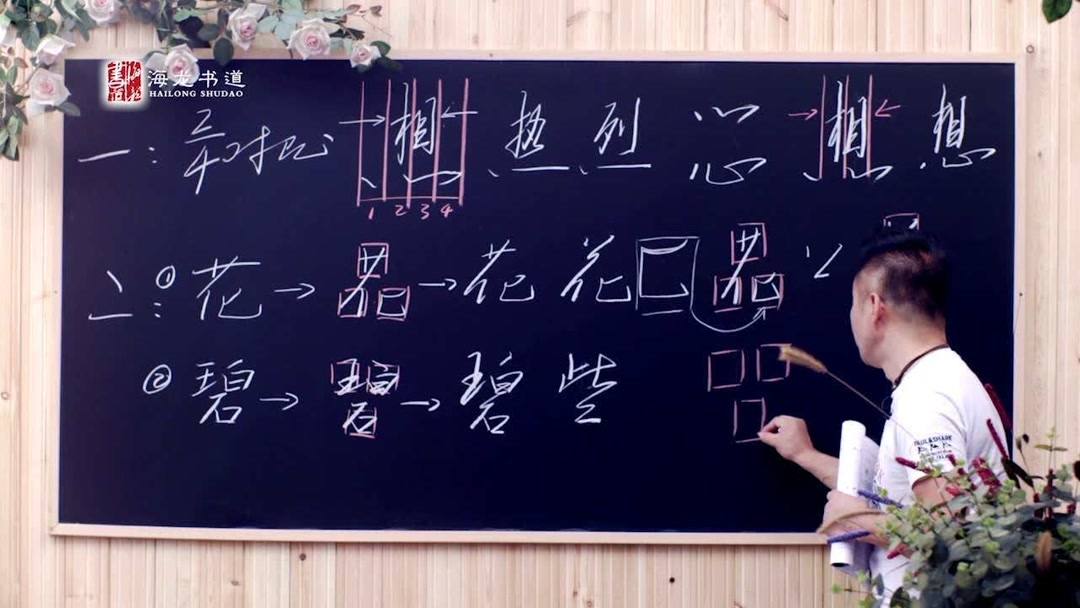 海龙书道
HAILONG SHUDAO
一: 2/4 相 热 烈 心 相 想
1 2 3 4
二: ① 花 → 花 → 花 花 花
② 碧 → 碧 → 碧 些
PAUL&SHARK